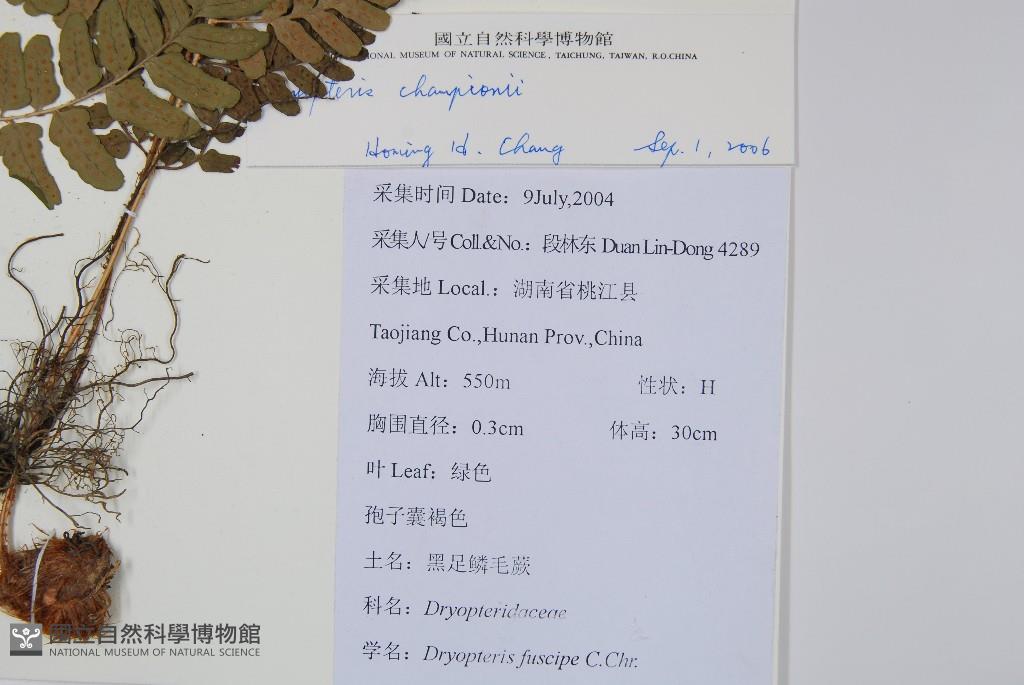 國立自然科學博物館
NATIONAL MUSEUM OF NATURAL SCIENCE, TAICHUNG, TAIWAN, R.O.CHINA
championii
Homing H. Chang Sep. 1, 2006
采集时间 Date：9July,2004
采集人/号 Coll.&No.：段林东 Duan Lin-Dong 4289
采集地 Local.：湖南省桃江县
Taojiang Co.,Hunan Prov.,China
海拔 Alt：550m 性状：H
胸围直径：0.3cm 体高：30cm
叶 Leaf：绿色
孢子囊褐色
土名：黑足鳞毛蕨
科名：Dryopteridaceae
学名：Dryopteris fuscipe C.Chr.
國立自然科學博物館
NATIONAL MUSEUM OF NATURAL SCIENCE